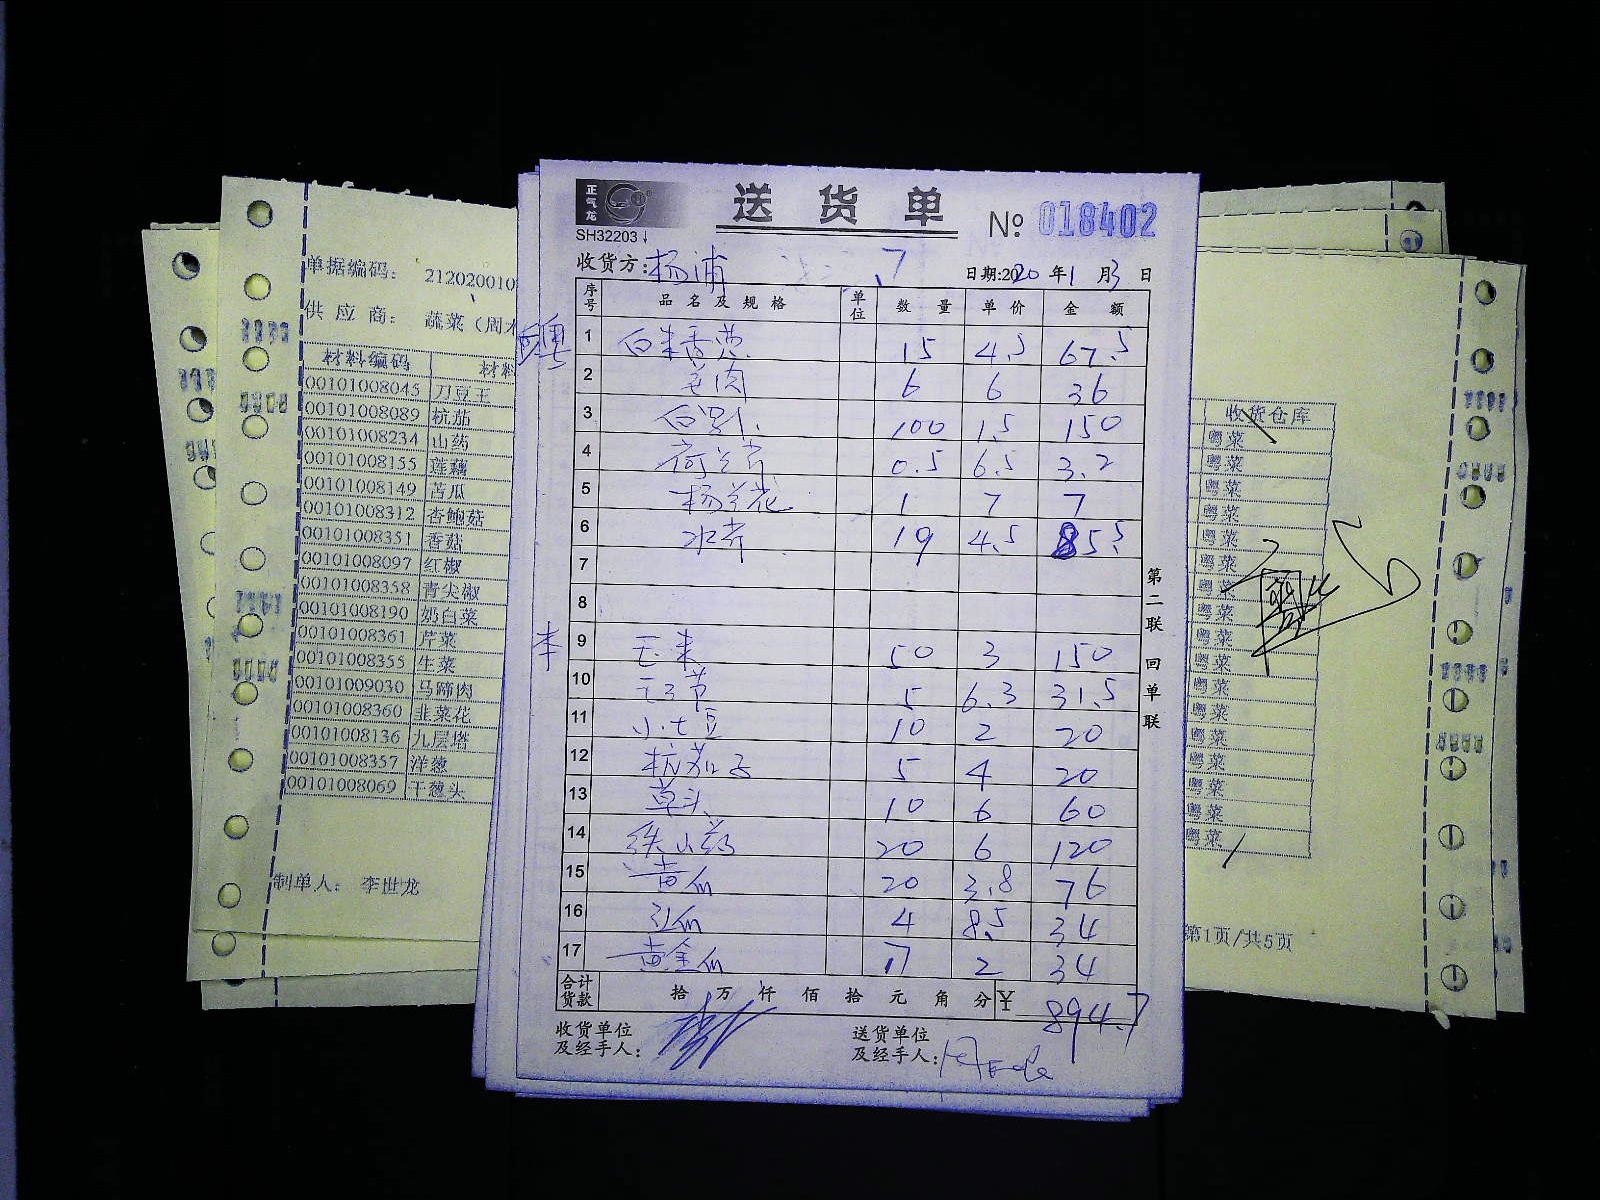 正气龙
送货单
№ 018402
SH32203
收货方: 杨浦 7
日期:2020 年 1 月 3 日
序号 品名及规格 单位 数量 单价 金额
粤
1 白米苋 15 4.5 67.5
2 毛肉 6 6 36
3 白萝卜 100 1.5 150
4 荷兰芹 0.5 6.5 3.2
5 杨兰花 1 7 7
6 水芹 19 4.5 85.5
7
8
本
9 玉米 50 3 150
10 5 6.3 31.5
11 小土豆 10 2 20
12 杭茄子 5 4 20
13 草头 10 6 60
14 铁山药 20 6 120
15 黄瓜 20 3.8 76
16 4 8.5 34
17 黄金瓜 17 2 34
合计货款 拾 万 仟 佰 拾 元 角 分 ¥ 894.7
收货单位及经手人:
送货单位及经手人:
第二联 回单联
单据编码: 212020010
供应商: 蔬菜（周
材料编码 材料
00101008045 刀豆王
00101008089 杭茄
00101008234 山药
00101008155 莲藕
00101008149 苦瓜
00101008312 杏鲍菇
00101008351 香菇
00101008097 红椒
00101008358 青尖椒
00101008190 奶白菜
00101008361 芹菜
00101008355 生菜
00101009030 马蹄肉
00101008360 韭菜花
00101008136 九层塔
00101008357 洋葱
00101008069 干葱头
制单人: 李世龙
收货仓库
粤菜
粤菜
粤菜
粤菜
粤菜
粤菜
粤菜
粤菜
粤菜
粤菜
粤菜
粤菜
粤菜
粤菜
粤菜
粤菜
粤菜
第1页/共5页